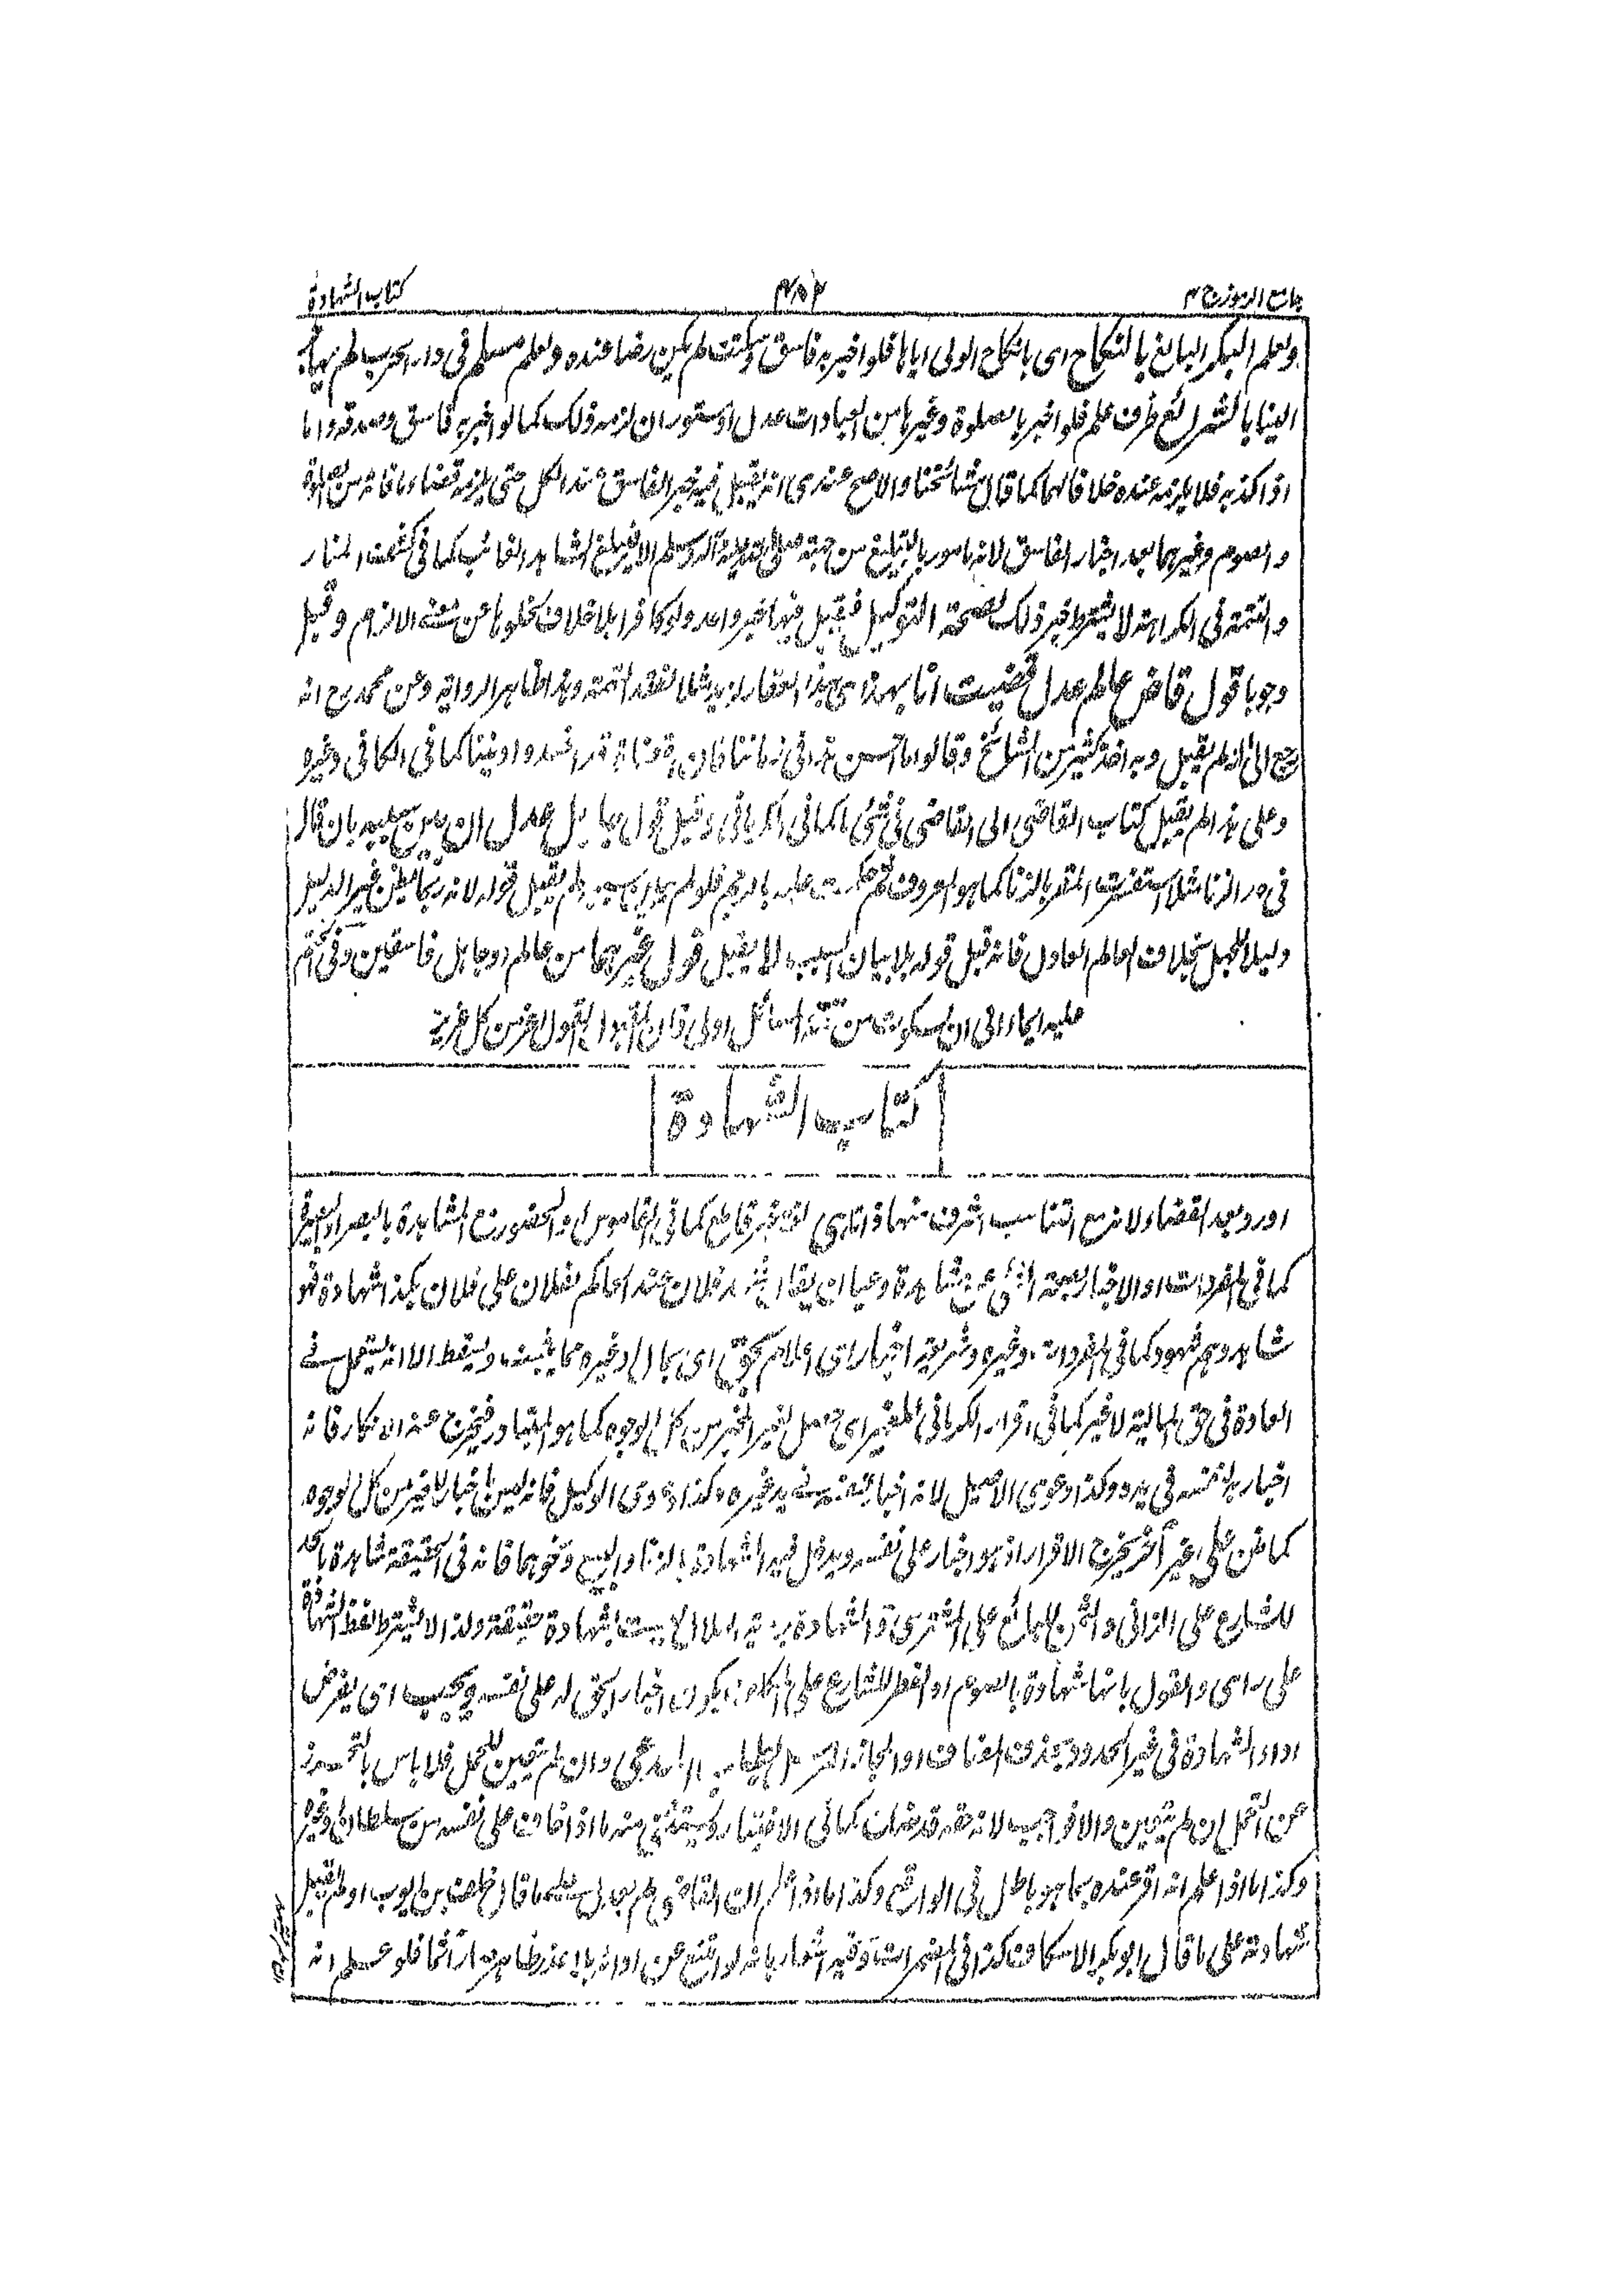 جامع الرموز ج ٢
٤٥٢
كتاب الشهادة
وعلم البكر البالغ بالنكاح اى بانكاح الولى اياها فلو اخبر به فاسق وسكتت لم يكن رضا عنده وعلم مسلم فى دار الحرب لم يهاجر
الينا بالشرائع ظرف علم فلو اخبر بالصلوة وغيرها من العبادات عدل او مستوران لزمه ذلك كما لو اخبر به فاسق وصدقه واما
اذا كذبه فلا يلزمه عنده خلافا لهما كما قال مشائخنا والاصح عندى انه يقبل فيه خبر الفاسق عند الكل حتى يلزمه قضاء ما فاته من الصلوة
والصوم وغيرهما بعد اخبار الفاسق لانه مامور بالتبليغ من جهته صلى الله عليه وآله وسلم الا فليبلغ الشاهد الغائب كما فى كشف المنار
والتتمة فى الكراهة لا يشترط خبر ذلك لصحة التوكيل فيقبل فيها خبر واحد ولو كافرا بلا خلاف لخلوها عن معنى الالزام وقبل
وجوبا قول قاض عالم عدل قضيت انا بهذا اى بهذا العقار لزيد مثلا لفقد التهمة وهذا ظاهر الرواية وعن محمد رح انه
رجع الى انه لم يقبل وبه اخذ كثير من المشائخ وقالوا ما احسن هذا فى زماننا فان قضاتنا قد افسدوا ديننا كما فى الكافى وغيره
وعلى هذا لم يقبل كتاب القاضى الى القاضى فى شئ كما فى الكرمانى وقبل قول جاهل عدل ان بين سببه بان قال
فى حد الزنا مثلا استفسرت المقر بالزنا كما هو المعروف ثم حكمت عليه بالرجم فلو لم يبين سببه لم يقبل قوله لانه ربما يظن غير الدليل
دليلا للجهل بخلاف العالم العادل فانه قبل قوله بلا بيان السبب لا يقبل قول غيرهما من عالم وجاهل فاسقين وفى ختم
عليه ايماء الى ان السكوت من تتمة المسائل اولى فان القول اعز من كل عزيز
كتاب الشهادة
اورد بعد القضاء لانه مع التناسب اشرف منها ذاتا هى لغة خبر قاطع كما فى القاموس او الحضور مع المشاهدة بالبصر او البصيرة
كما فى المفردات او الاخبار بصحة الشئ عن مشاهدة وعيان يقال شهد فلان عند الحاكم لفلان على فلان بكذا شهادة فهو
شاهد وهم شهود كما فى المفردات وغيره وشريعة اخبار اى اعلام بحق اى بمال وغيره مما يثبت ويسقط الا انه يستعمل فى
العادة فى حق المالية لا غير كما فى اقرار الكرمانى للغير اى حصل لغير المخبر من كل الوجوه كما هو المتبادر فيخرج عنه الانكار فانه
اخبار لنفسه فى يده وكذا دعوى الاصيل لانه اخبار لنفسه فى يد غيره وكذا دعوى الوكيل فانه ليس باخبار للغير من كل الوجوه
كما ظن على غير آخر يخرج الاقرار اذ هو اخبار على نفسه ويدخل فيه الشهادة بالزنا والبيع ونحوهما فانه فى الحقيقة شاهدة بالحد
للشارع على الزانى والثمن للبائع على المشترى والشهادة برؤية الهلال ليست بشهادة حقيقة ولذا لا يشترط لفظ الشهادة
على راى والقول بانها شهادة بالصوم او الفطر للشارع على المكلف يكون اخبارا بحق له على نفسه ويجب اى يفرض
اداء الشهادة فى غير الحدود بحذف المضاف او المجاز بطلب المدعى وان لم يتعين للتحمل فلا باس بالتحرز
عن التحمل ان لم يتعين والا فواجب لانه حقه قد ضاع كما فى الاختيار ويستثنى منه ما اذا خاف على نفسه من سلطان او غيره
وكذا ما اذا علم انه اقر عنده بما هو باطل فى الواقع وكذا ما اذا علم ان القاضى لم يعدل على ما قال خلف بن ايوب او لم يقبل
شهادته على ما قال ابو بكر الاسكاف كذا فى المضمرات وفيه اشعار بانه لو امتنع عن ادائه بلا عذر ظاهر صار آثما فلو علم انه